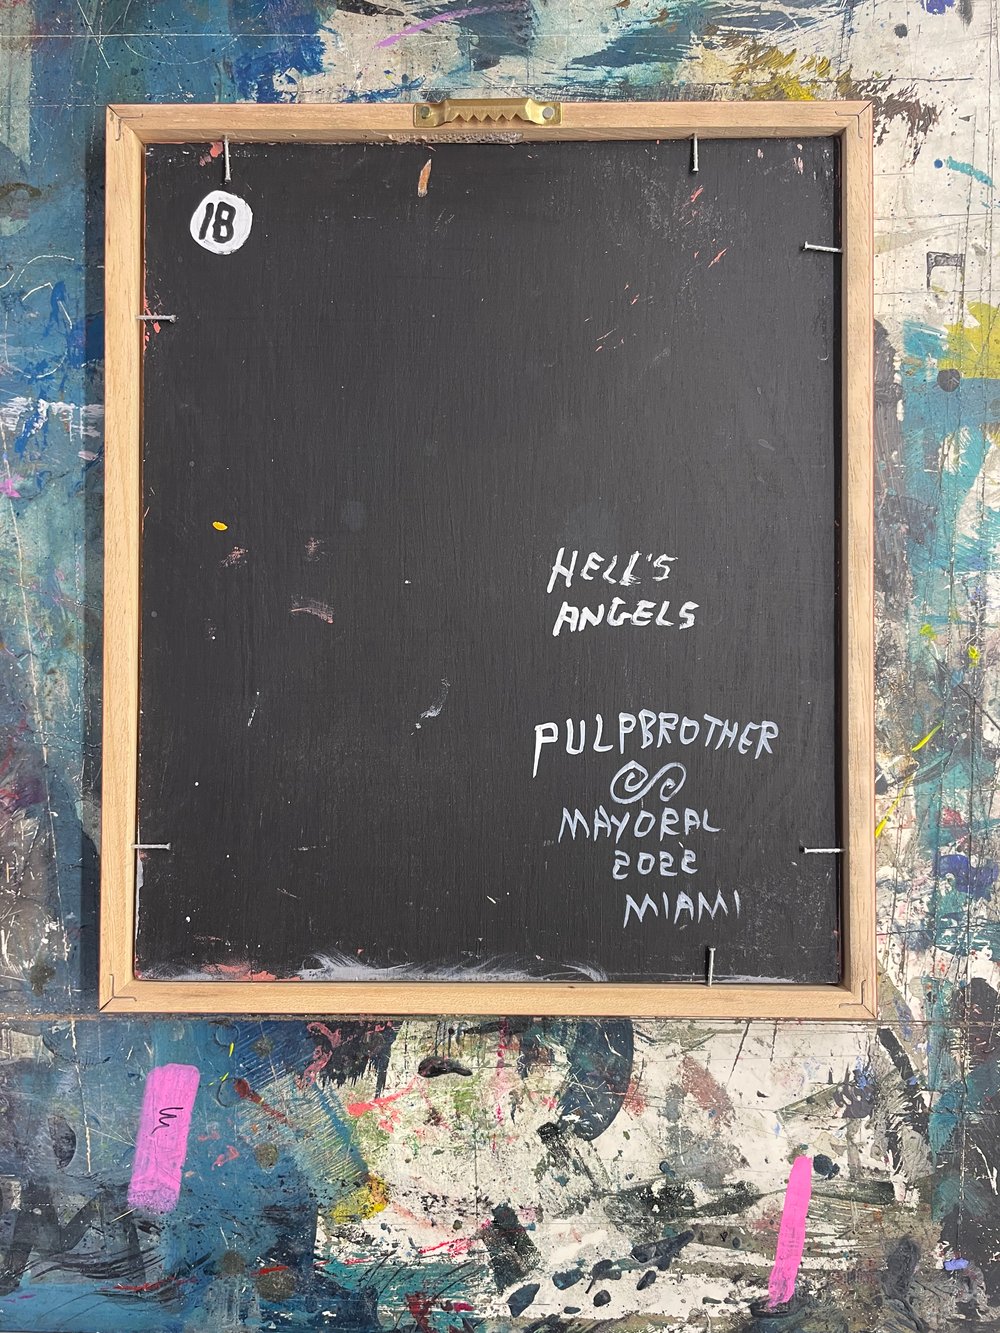 18
HELL'S
ANGELS
PULPBROTHER
MAYORAL
2022
MIAMI